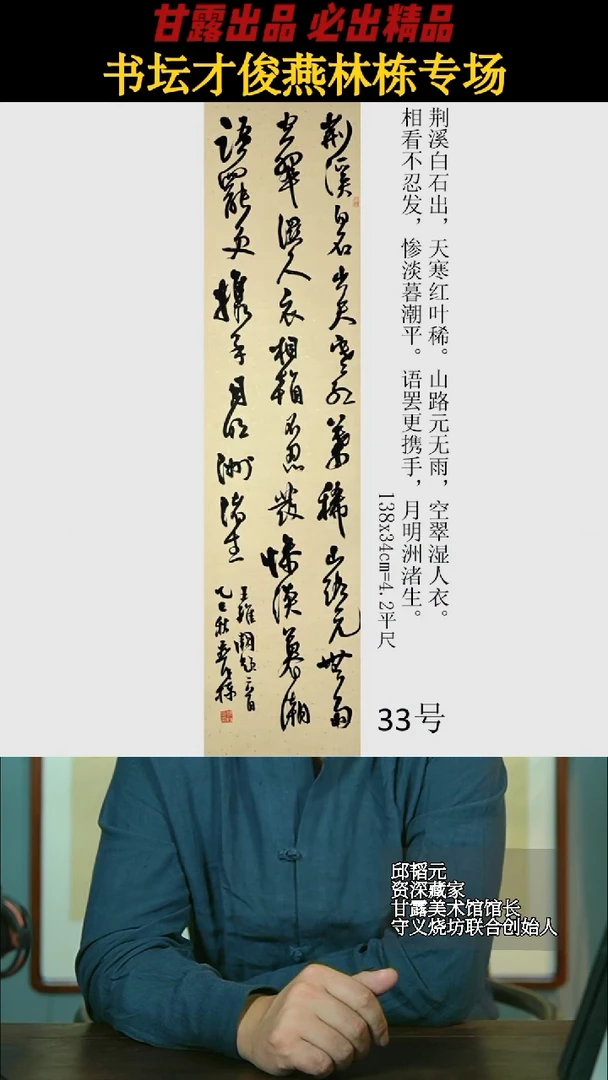 甘露出品 必出精品
书坛才俊燕林栋专场
荆溪白石出，天寒红叶稀。山路元无雨，空翠湿人衣。
相看不忍发，惨淡暮潮平。语罢更携手，月明洲渚生。
138x34cm=4.2平尺
33号
荆溪白石出天寒红葉稀山路元無雨
空翠濕人衣相看不忍發惨淡暮潮
語罷更攜手月明洲渚生
王維闕題二首
乙巳秋燕林栋
邱韬元
资深藏家
甘露美术馆馆长
守义烧坊联合创始人